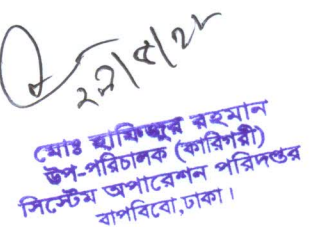 ২৯/৫/২৮
মোঃ হাফিজুর রহমান
উপ-পরিচালক (কারিগরী)
সিস্টেম অপারেশন পরিদপ্তর
বাপবিবো,ঢাকা।